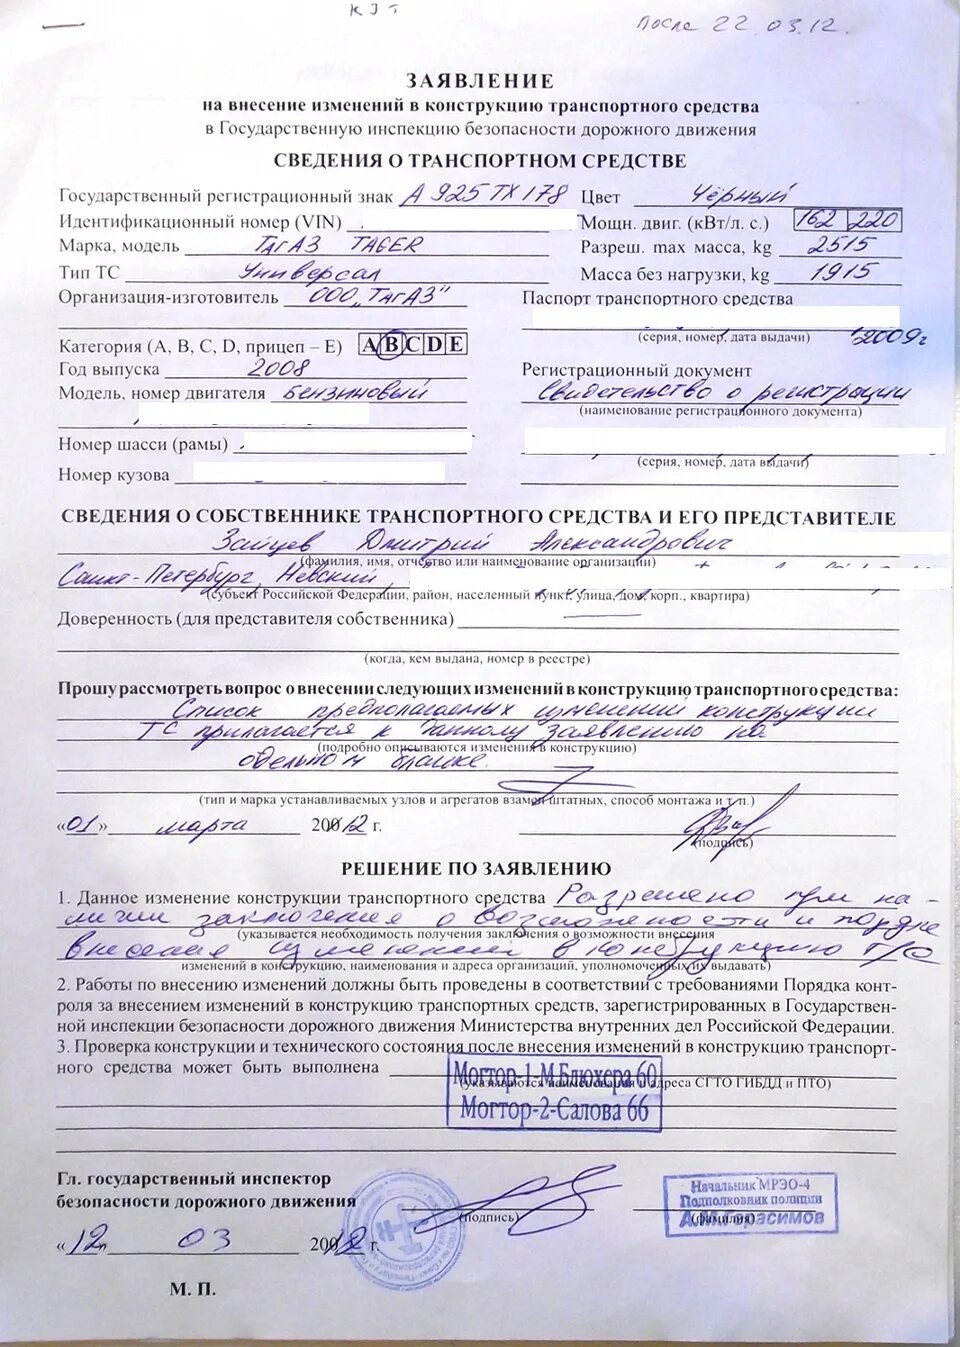 КЭТ
После 22.03.12.
ЗАЯВЛЕНИЕ
на внесение изменений в конструкцию транспортного средства
в Государственную инспекцию безопасности дорожного движения
СВЕДЕНИЯ О ТРАНСПОРТНОМ СРЕДСТВЕ
Государственный регистрационный знак А 925 ТХ 178 Цвет Чёрный
Идентификационный номер (VIN) Мощн. двиг. (кВт/л. с.) 162 220
Марка, модель ТагАЗ TAGER Разреш. max масса, kg 2515
Тип ТС Универсал Масса без нагрузки, kg 1915
Организация-изготовитель ООО „ТагАЗ" Паспорт транспортного средства
(серия, номер, дата выдачи) 2009г
Категория (А, В, С, D, прицеп – Е) A B C D E
Год выпуска 2008 Регистрационный документ
Модель, номер двигателя Бензиновый Свидетельство о регистрации
(наименование регистрационного документа)
Номер шасси (рамы)
(серия, номер, дата выдачи)
Номер кузова
СВЕДЕНИЯ О СОБСТВЕННИКЕ ТРАНСПОРТНОГО СРЕДСТВА И ЕГО ПРЕДСТАВИТЕЛЕ
Зайцев Дмитрий Александрович
(фамилия, имя, отчество или наименование организации)
Санкт-Петербург, Невский
(субъект Российской Федерации, район, населенный пункт, улица, дом, корп., квартира)
Доверенность (для представителя собственника)
(когда, кем выдана, номер в реестре)
Прошу рассмотреть вопрос о внесении следующих изменений в конструкцию транспортного средства:
Список предполагаемых изменений конструкции
ТС прилагается к данному заявлению на
(подробно описываются изменения в конструкцию)
отдельном бланке.
(тип и марка устанавливаемых узлов и агрегатов взамен штатных, способ монтажа и т.п.)
«01» марта 2012 г.
(подпись)
РЕШЕНИЕ ПО ЗАЯВЛЕНИЮ
1. Данное изменение конструкции транспортного средства Разрешено при на-
личии заключения о возможности и порядке
(указывается необходимость получения заключения о возможности внесения
внесения изменений в конструкцию Т/С
изменений в конструкцию, наименования и адреса организаций, уполномоченных их выдавать)
2. Работы по внесению изменений должны быть проведены в соответствии с требованиями Порядка конт-
роля за внесением изменений в конструкцию транспортных средств, зарегистрированных в Государствен-
ной инспекции безопасности дорожного движения Министерства внутренних дел Российской Федерации.
3. Проверка конструкции и технического состояния после внесения изменений в конструкцию транспорт-
ного средства может быть выполнена
Могтор-1-М.Блюхера 60
(указываются наименования и адреса СГТО ГИБДД и ПТО)
Могтор-2-Салова 66
Гл. государственный инспектор
безопасности дорожного движения
(подпись)
Начальник МРЭО-4
Подполковник полиции
А.М.Герасимов
(фамилия)
«12» 03 2012 г.
М. П.